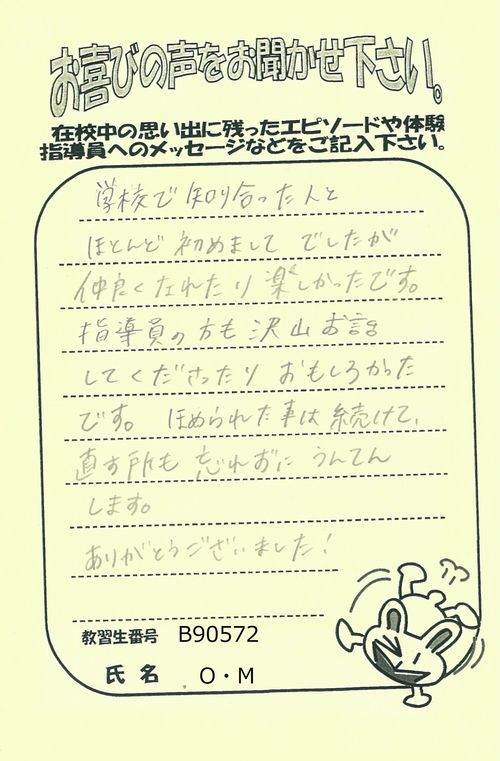 お喜びの声をお聞かせ下さい。
在校中の思い出に残ったエピソードや体験
指導員へのメッセージなどをご記入下さい。
学校で知り合った人と
ほとんど初めまして でしたが
仲良くなれたり楽しかったです。
指導員の方も沢山お話
してくださったり おもしろかった
です。 ほめられた事は続けて、
直す所も忘れずに うんてん
します。
ありがとうございました!
教習生番号 B90572
氏名 O・M